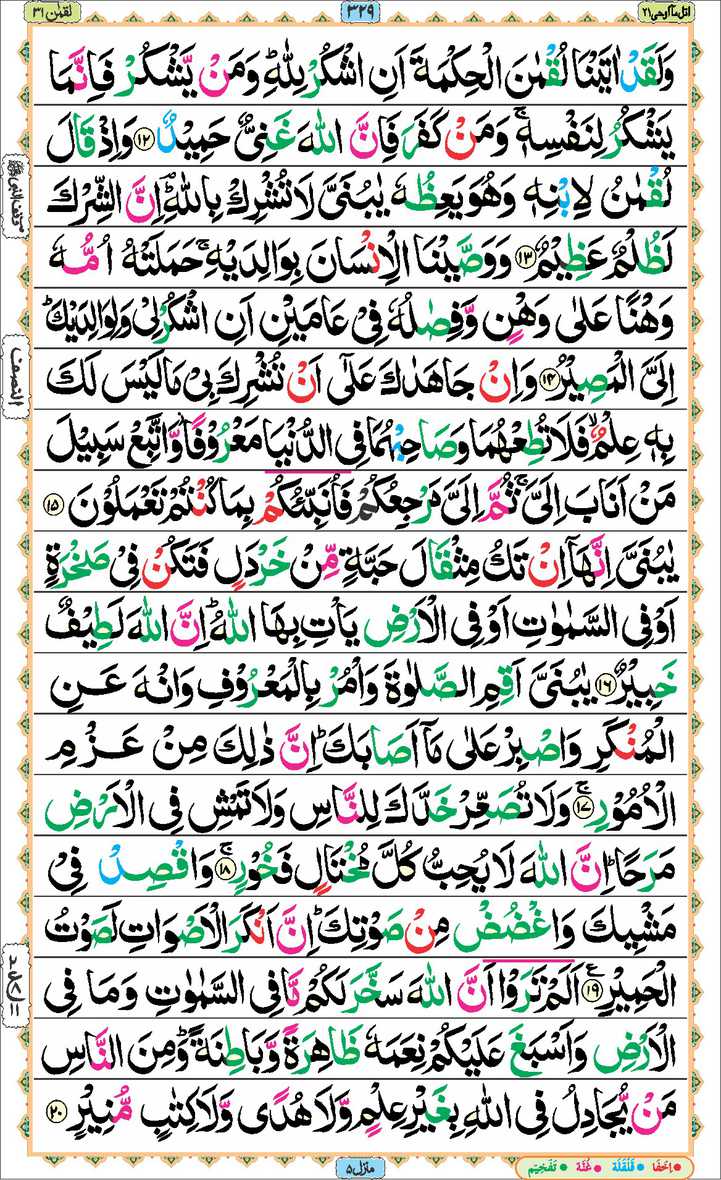 اتل مآ اوحی ۲۱
۳۲۹
لقمٰن ۳۱
وَلَقَدْ اٰتَیْنَا لُقْمٰنَ الْحِكْمَةَ اَنِ اشْكُرْ لِلّٰهِ ؕ وَمَنْ یَّشْكُرْ فَاِنَّمَا
یَشْكُرُ لِنَفْسِهٖ ۚ وَمَنْ كَفَرَ فَاِنَّ اللّٰهَ غَنِیٌّ حَمِیْدٌ ﴿۱۲﴾ وَاِذْ قَالَ
لُقْمٰنُ لِابْنِهٖ وَهُوَ یَعِظُهٗ یٰبُنَیَّ لَا تُشْرِكْ بِاللّٰهِ ؔؕ اِنَّ الشِّرْكَ
لَظُلْمٌ عَظِیْمٌ ﴿۱۳﴾ وَوَصَّیْنَا الْاِنْسَانَ بِوَالِدَیْهِ ۚ حَمَلَتْهُ اُمُّهٗ
وَهْنًا عَلٰی وَهْنٍ وَّفِصٰلُهٗ فِیْ عَامَیْنِ اَنِ اشْكُرْ لِیْ وَلِوَالِدَیْكَ ؕ
اِلَیَّ الْمَصِیْرُ ﴿۱۴﴾ وَاِنْ جَاهَدٰكَ عَلٰۤی اَنْ تُشْرِكَ بِیْ مَا لَیْسَ لَكَ
بِهٖ عِلْمٌ ۙ فَلَا تُطِعْهُمَا وَصَاحِبْهُمَا فِی الدُّنْیَا مَعْرُوْفًا ؗ وَّاتَّبِعْ سَبِیْلَ
مَنْ اَنَابَ اِلَیَّ ۚ ثُمَّ اِلَیَّ مَرْجِعُكُمْ فَاُنَبِّئُكُمْ بِمَا كُنْتُمْ تَعْمَلُوْنَ ﴿۱۵﴾
یٰبُنَیَّ اِنَّهَاۤ اِنْ تَكُ مِثْقَالَ حَبَّةٍ مِّنْ خَرْدَلٍ فَتَكُنْ فِیْ صَخْرَةٍ
اَوْ فِی السَّمٰوٰتِ اَوْ فِی الْاَرْضِ یَاْتِ بِهَا اللّٰهُ ؕ اِنَّ اللّٰهَ لَطِیْفٌ
خَبِیْرٌ ﴿۱۶﴾ یٰبُنَیَّ اَقِمِ الصَّلٰوةَ وَاْمُرْ بِالْمَعْرُوْفِ وَانْهَ عَنِ
الْمُنْكَرِ وَاصْبِرْ عَلٰی مَاۤ اَصَابَكَ ؕ اِنَّ ذٰلِكَ مِنْ عَزْمِ
الْاُمُوْرِ ۚ﴿۱۷﴾ وَلَا تُصَعِّرْ خَدَّكَ لِلنَّاسِ وَلَا تَمْشِ فِی الْاَرْضِ
مَرَحًا ؕ اِنَّ اللّٰهَ لَا یُحِبُّ كُلَّ مُخْتَالٍ فَخُوْرٍ ۚ﴿۱۸﴾ وَاقْصِدْ فِیْ
مَشْیِكَ وَاغْضُضْ مِنْ صَوْتِكَ ؕ اِنَّ اَنْكَرَ الْاَصْوَاتِ لَصَوْتُ
الْحَمِیْرِ ﴿۱۹﴾ ع اَلَمْ تَرَوْا اَنَّ اللّٰهَ سَخَّرَ لَكُمْ مَّا فِی السَّمٰوٰتِ وَمَا فِی
الْاَرْضِ وَاَسْبَغَ عَلَیْكُمْ نِعَمَهٗ ظَاهِرَةً وَّبَاطِنَةً ؕ وَمِنَ النَّاسِ
مَنْ یُّجَادِلُ فِی اللّٰهِ بِغَیْرِ عِلْمٍ وَّلَا هُدًی وَّلَا كِتٰبٍ مُّنِیْرٍ ﴿۲۰﴾
وقف النبی ﷺ
النصف
منزل ۵
اِخفَا قَلْقَلَه غُنَّه تَفْخِیْم